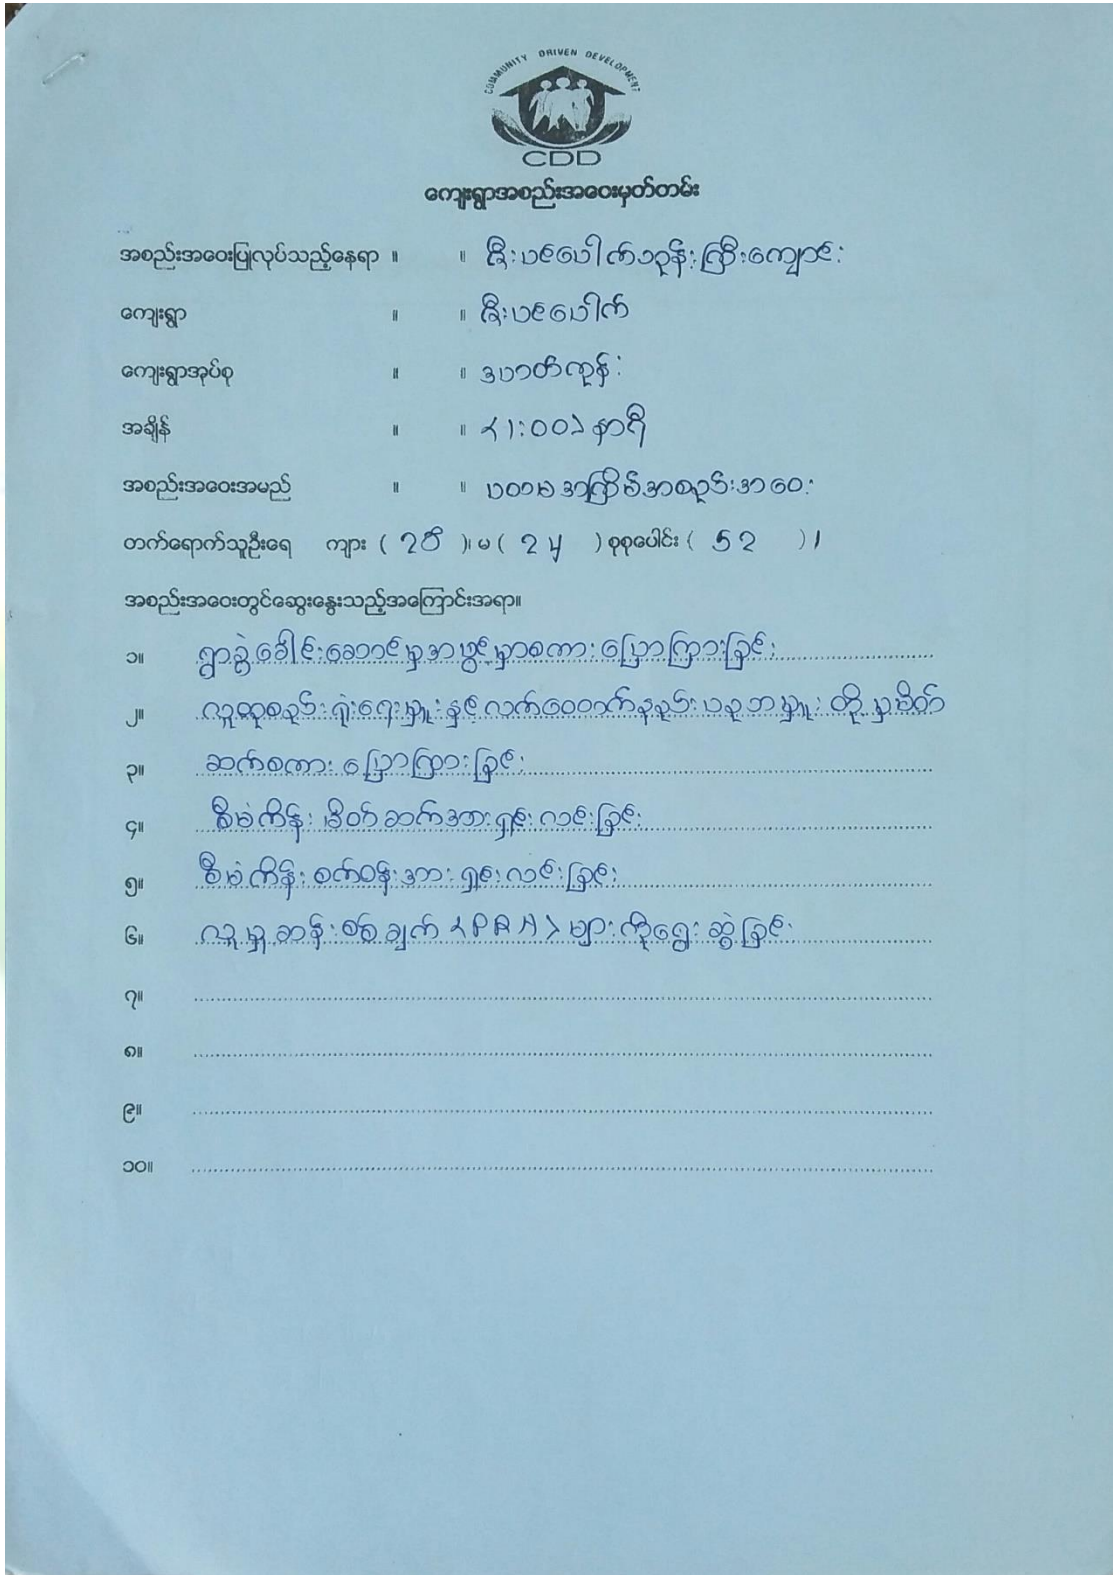 COMMUNITY DRIVEN DEVELOPMENT
CDD
ကျေးရွာအစည်းအဝေးမှတ်တမ်း
အစည်းအဝေးပြုလုပ်သည့်နေရာ ။ ။ ဇီးပင်ပေါက်ဘုန်းကြီးကျောင်း
ကျေးရွာ ။ ။ ဇီးပင်ပေါက်
ကျေးရွာအုပ်စု ။ ။
အချိန် ။ ။ (၁:၀၀) နာရီ
အစည်းအဝေးအမည် ။ ။ ပထမအကြိမ်အစည်းအဝေး
တက်ရောက်သူဦးရေ ကျား ( ၂၆ )။ မ ( ၂၄ ) စုစုပေါင်း ( ၅၂ ) ၊
အစည်းအဝေးတွင်ဆွေးနွေးသည့်အကြောင်းအရာ။
၁။ ရွာခွဲခေါင်းဆောင်မှအဖွင့်မှာစကားပြောကြားခြင်း
၂။ လူထုစည်းရုံးရေးမှူးနှင့်လက်ထောက်နည်းပညာမှူးတို့မှမိတ်
၃။ ဆက်စကားပြောကြားခြင်း
၄။ စီမံကိန်းမိတ်ဆက်အားရှင်းလင်းခြင်း
၅။ စီမံကိန်းစက်ဝန်းအားရှင်းလင်းခြင်း
၆။ လူမှုဆန်းစစ်ချက် (PRA) များကိုရေးဆွဲခြင်း
၇။
၈။
၉။
၁၀။